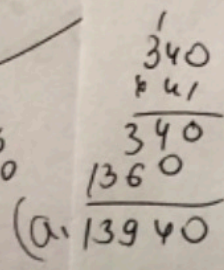 1
340
x 41
340
1360
(a. 13940